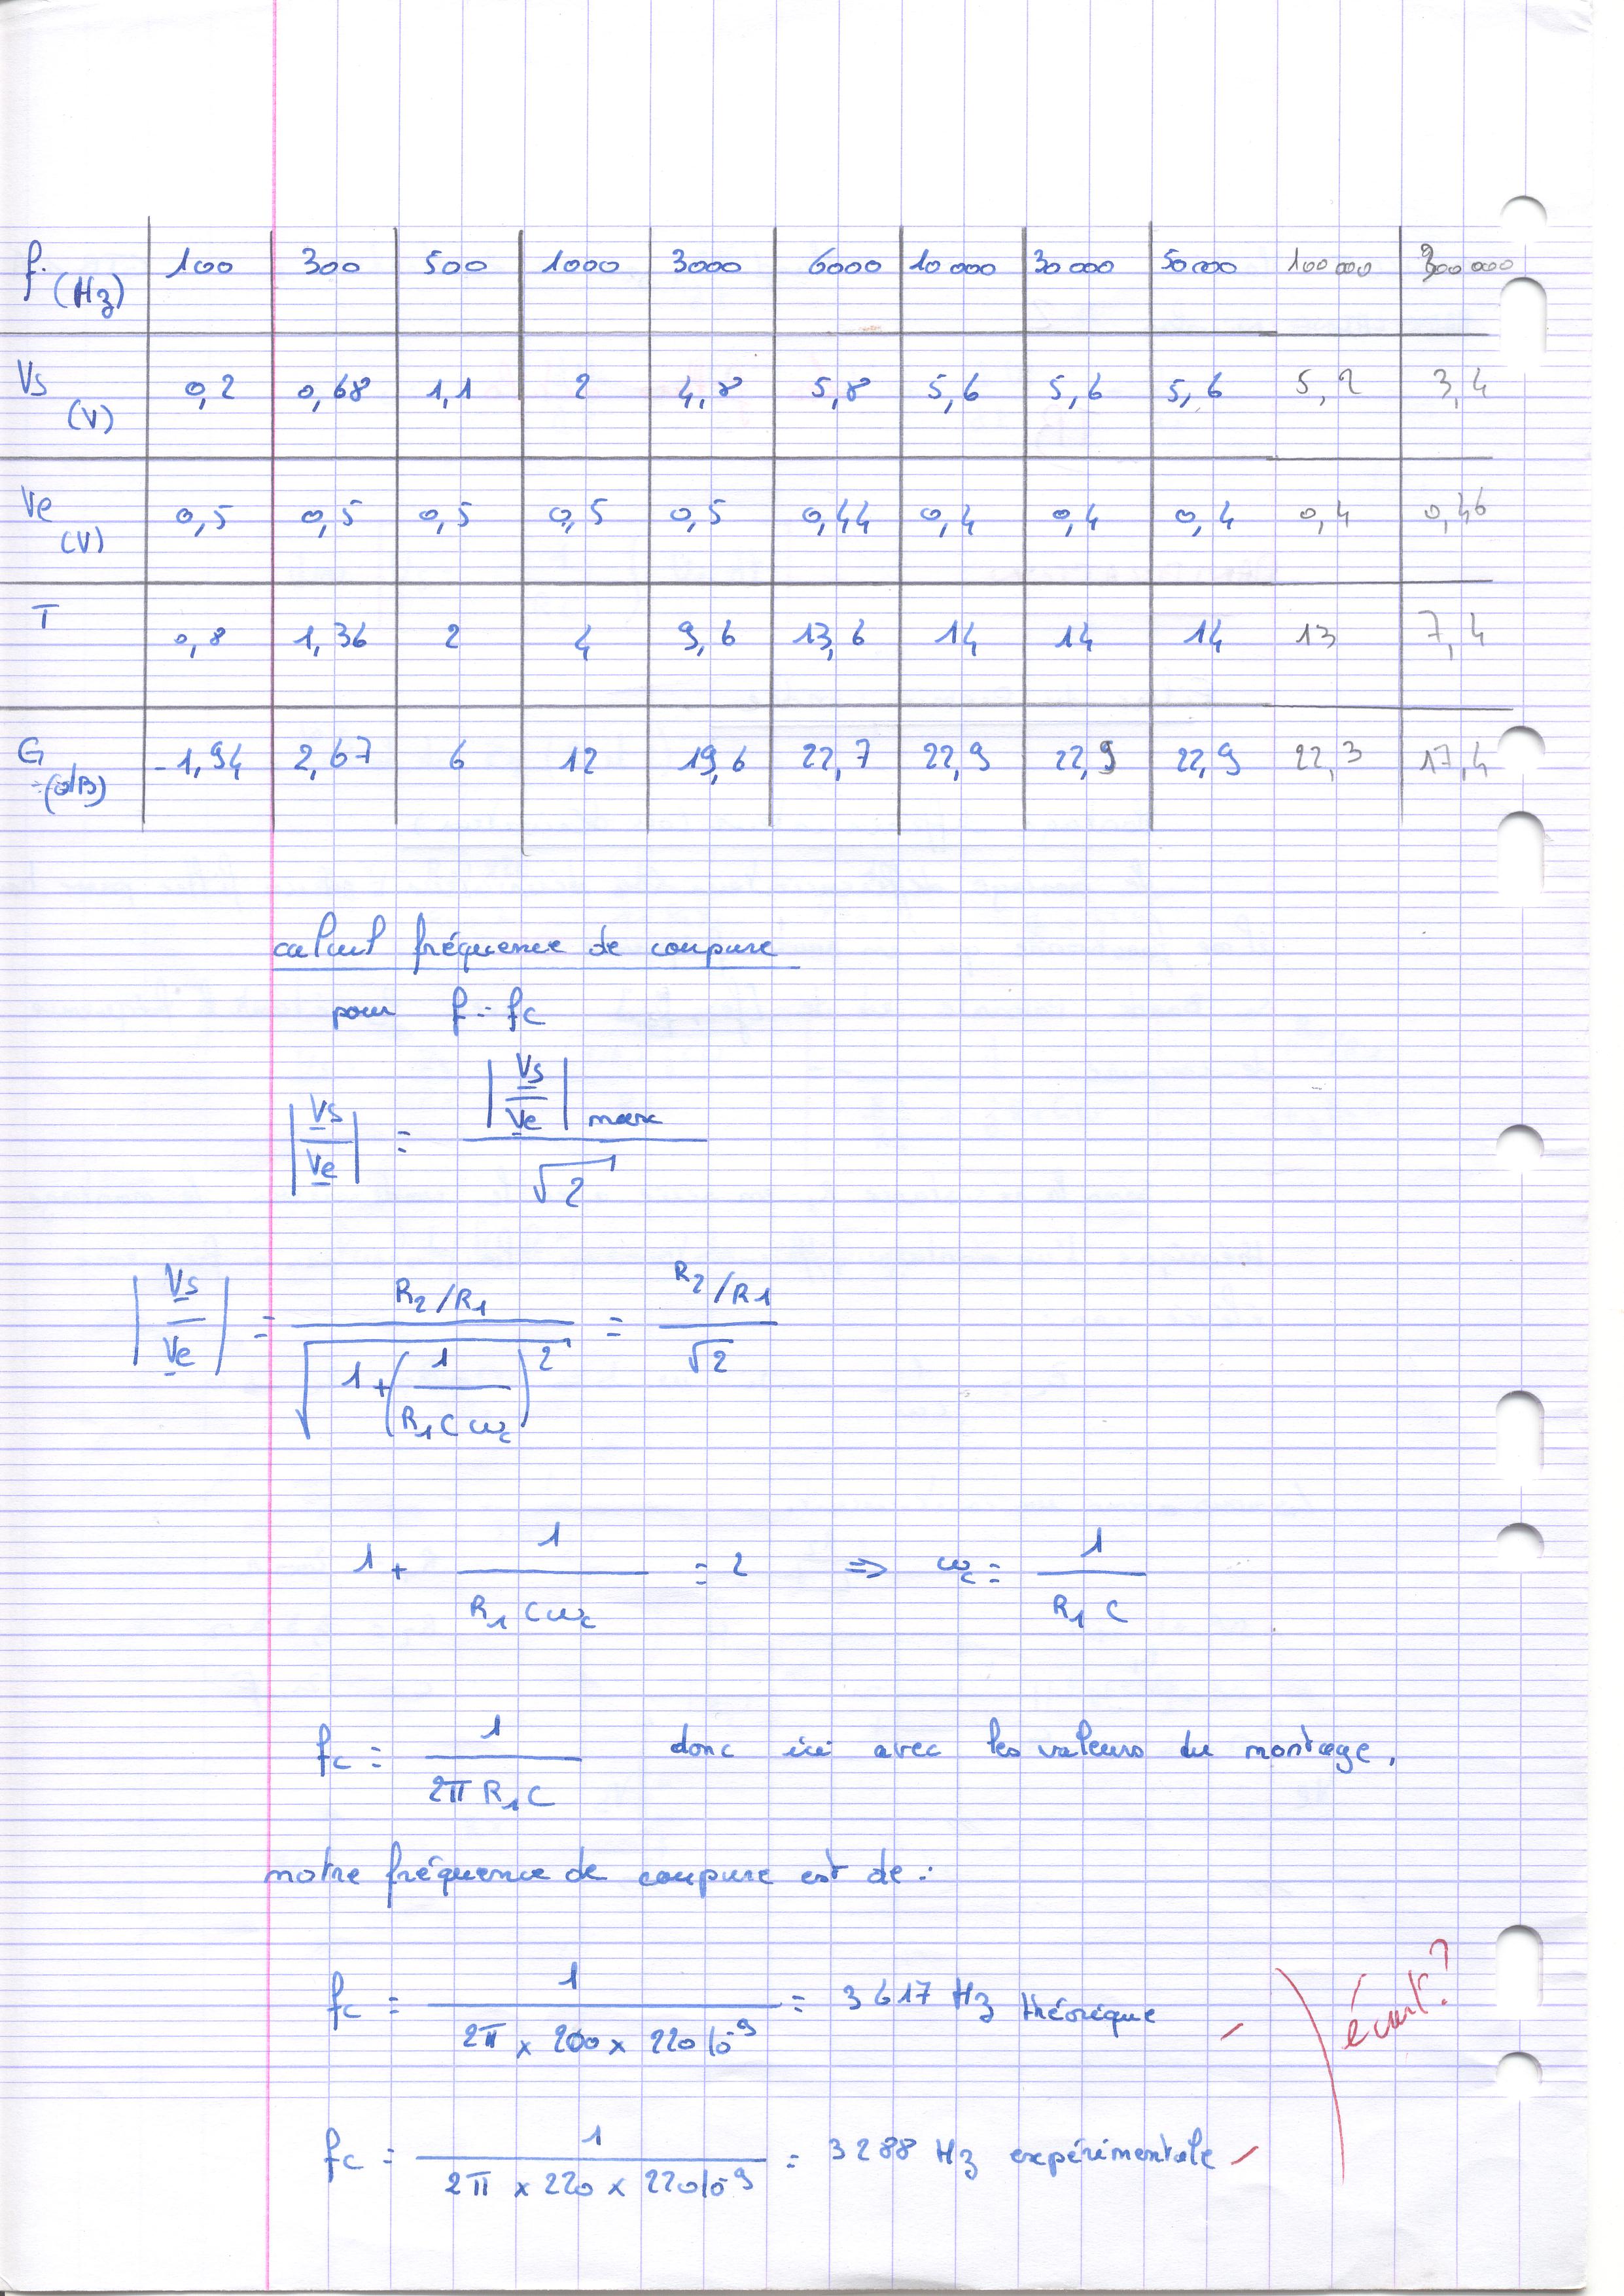 f (Hz) 100 300 500 1000 3000 6000 10 000 30 000 50 000 100 000 300 000
Vs (V) 0,2 0,68 1,1 2 4,8 5,8 5,6 5,6 5,6 5,2 3,4
Ve (V) 0,5 0,5 0,5 0,5 0,5 0,44 0,4 0,4 0,4 0,4 0,46
T 0,8 1,36 2 4 9,6 13,6 14 14 14 13 7,4
G (dB) -1,94 2,67 6 12 19,6 22,7 22,9 22,9 22,9 22,3 17,4
calcul fréquence de coupure
pour f = fc
|Vs/Ve| = |Vs/Ve| max / √2
|Vs/Ve| = (R2/R1) / √(1 + (1/(R1 C ωc))²) = (R2/R1) / √2
1 + 1/(R1 C ωc) = 2 => ωc = 1/(R1 C)
fc = 1/(2π R1 C) donc ici avec les valeurs du montage,
notre fréquence de coupure est de :
fc = 1/(2π x 200 x 220 10^-9) = 3617 Hz théorique
écart ?
fc = 1/(2π x 220 x 220 10^-9) = 3288 Hz expérimentale